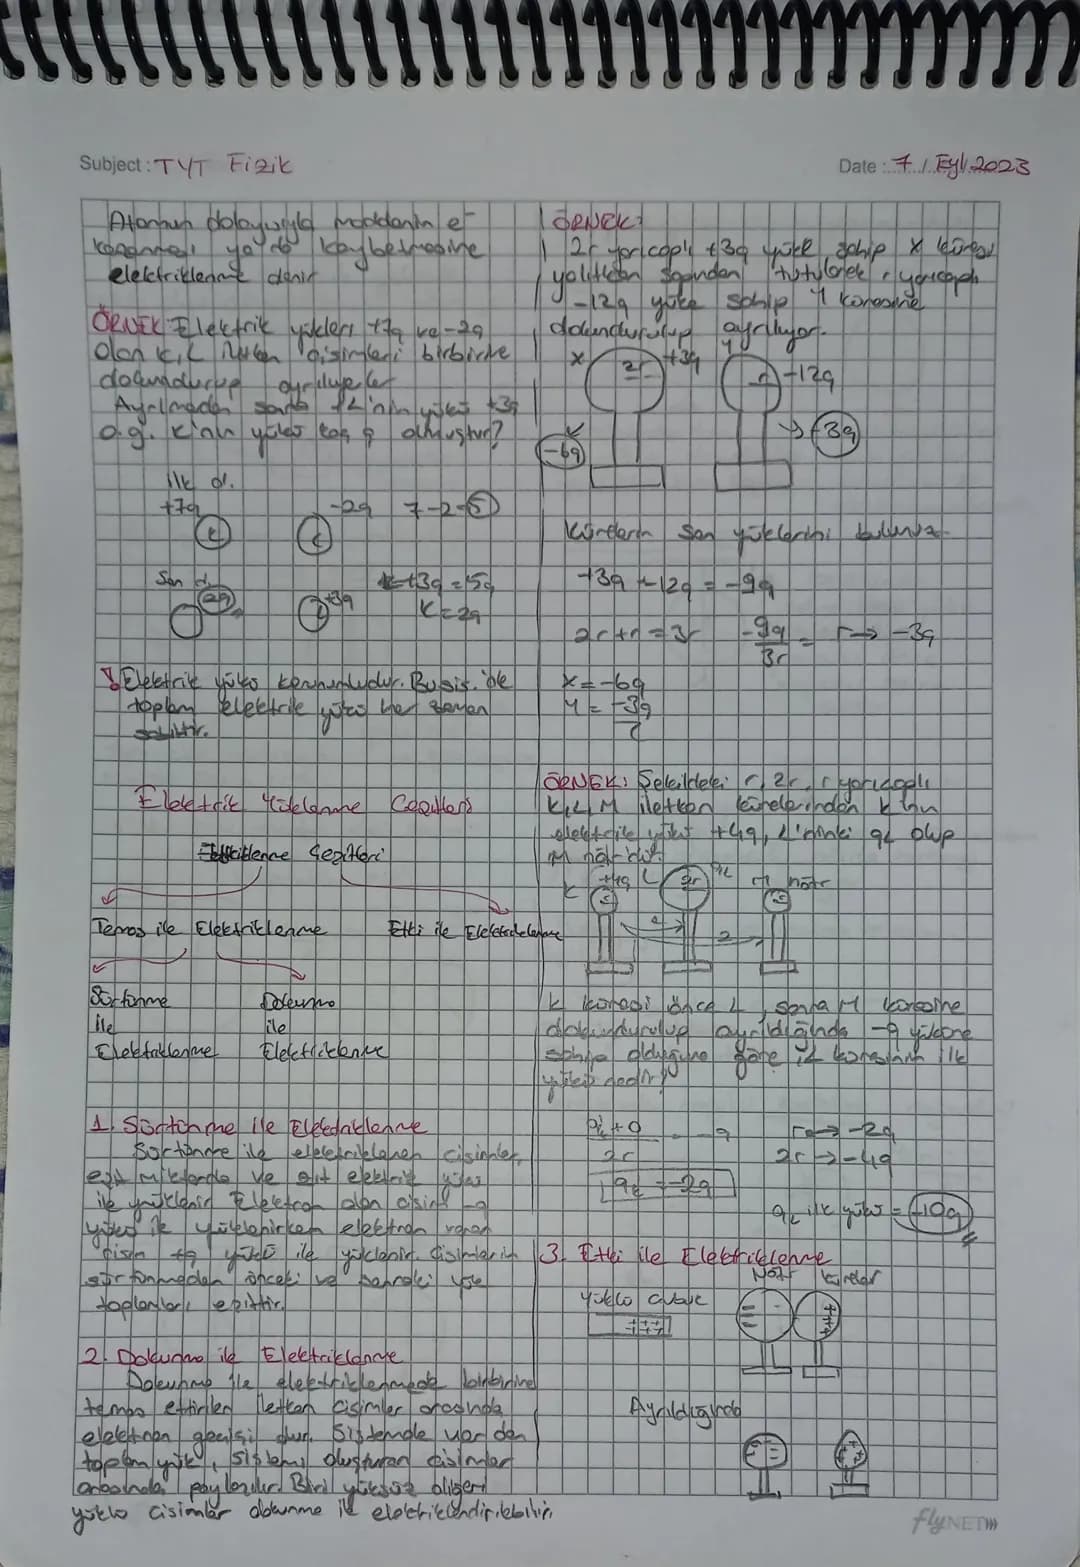 Subject: TYT Fizik
Date: 7 / Eyl. 2023
dolayısıyla maddenin e⁻
kazanması ya da kaybetmesine
elektriklenme denir
ÖRNEK: Elektrik yükleri +7q ve -2q
olan K, L cisimleri birbirine
dokundurup ayrılıyorlar
Ayrılmadan sonra L'nin yükü +3q
o.g. K'nın yükü kaç q olmuştur?
ilk d.
+7q -2q 7-2=5
K L
Son d.
2q +3q +3q = 5q
K=2q
! Elektrik yükü korunumludur. Bu sis. de
toplam elektrik yükü her zaman
sabittir.
Elektrik Yüklenme Çeşitleri
Çeşitleri
Temas ile Elektriklenme Etki ile Elektriklenme
Sürtünme Dokunma
ile ile
Elektriklenme Elektriklenme
1. Sürtünme ile Elektriklenme
Sürtünme ile elektriklenen cisimler,
eşit miktarda ve zıt elektrik yükü
ile yüklenir. Elektron alan cisim -q
yükü ile yüklenirken elektron veren
cisim +q yükü ile yüklenir. Cisimlerin
sürtünmeden önceki ve sonraki yük
toplamları eşittir.
2. Dokunma ile Elektriklenme
Dokunma ile elektriklenmede birbirine
temas ettirilen iletken cisimler arasında
elektron geçişi olur. Sistemde var olan
toplam yük, sistemi oluşturan cisimler
arasında paylaşılır. Biri yüksüz diğeri
yüklü cisimler dokunma ile elektriklendirilebilir.
ÖRNEK:
2r yarıçaplı +3q yüke sahip X küresi
yalıtkan sapından tutularak r yarıçaplı
-12q yüke sahip Y küresine
dokundurulup ayrılıyor.
X 2r +3q Y r -12q
-6q -3q
Kürelerin son yüklerini bulunuz.
+3q + -12q = -9q
2r+r = 3r -9q/3r = r → -3q
X = -6q
Y = -3q
ÖRNEK: Şekildeki r, 2r, r yarıçaplı
K, L, M iletken kürelerinden K'nın
elektrik yükü +4q, L'ninki qL olup
M nötrdür.
K +4q L 2r qL M nötr
2
K küresi önce L, sonra M küresine
dokundurulup ayrıldığında -q yüküne
sahip olduğuna göre L küresinin ilk
yükü nedir?
+0 -q r → -2q
2r 2r → -4q
= -2q
qL ilk yükü = -10q
3. Etki ile Elektriklenme
Yüklü çubuk Nötr küreler
+++
Ayrıldığında
flyNET